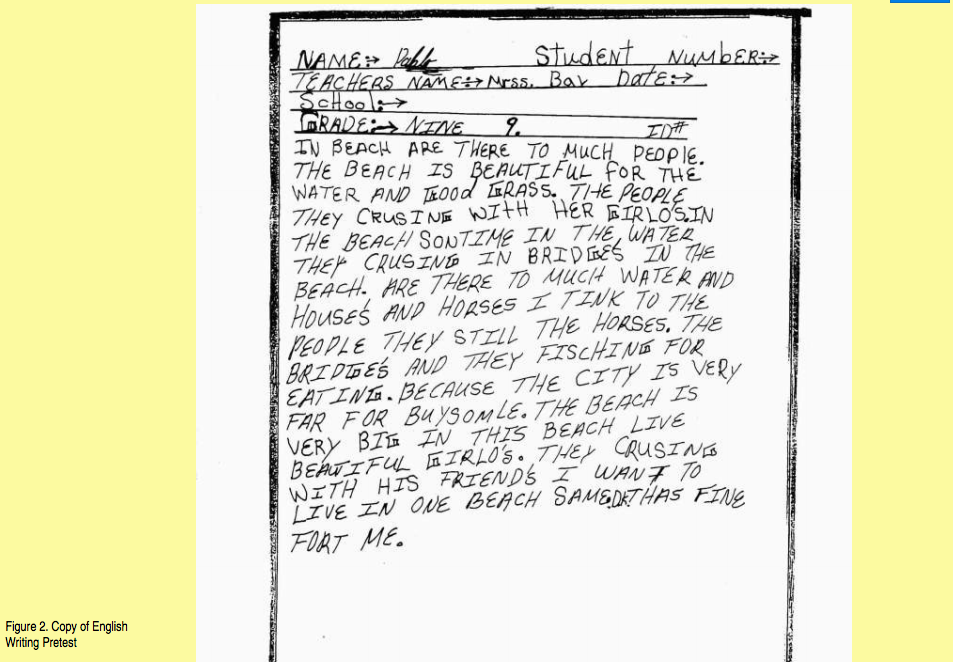 NAME:→ Pablo STUdENT NUMbER:→
TEACHERS NAME:→ Mrss. Bay DATE:→
SCHOOL:→
GRADE:→ NINE 9. ID#
IN BEACH ARE THERE TO MUCH PEOPlE.
THE BEACH IS BEAUTIFUL FOR THE
WATER AND GOOd GRASS. THE PEOPLE
THEY CRUSING WITH HER GIRLO'S.IN
THE BEACH SONTIME IN THE WATER
THEY CRUSING IN BRIDGE'S IN THE
BEACH. ARE THERE TO MUCH WATER AND
HOUSE'S AND HORSES I TINK TO THE
PEOPLE THEY STILL THE HORSES. THE
BRIDGE'S AND THEY FISCHING FOR
EATING. BECAUSE THE CITY IS VERY
FAR FOR BUYSOMLE. THE BEACH IS
VERY BIG IN THIS BEACH LIVE
BEAUTIFUL GIRLO'S. THEY CRUSING
WITH HIS FRIEND'S I WANT TO
LIVE IN ONE BEACH SAME THAS FINE
FORT ME.
Figure 2. Copy of English
Writing Pretest